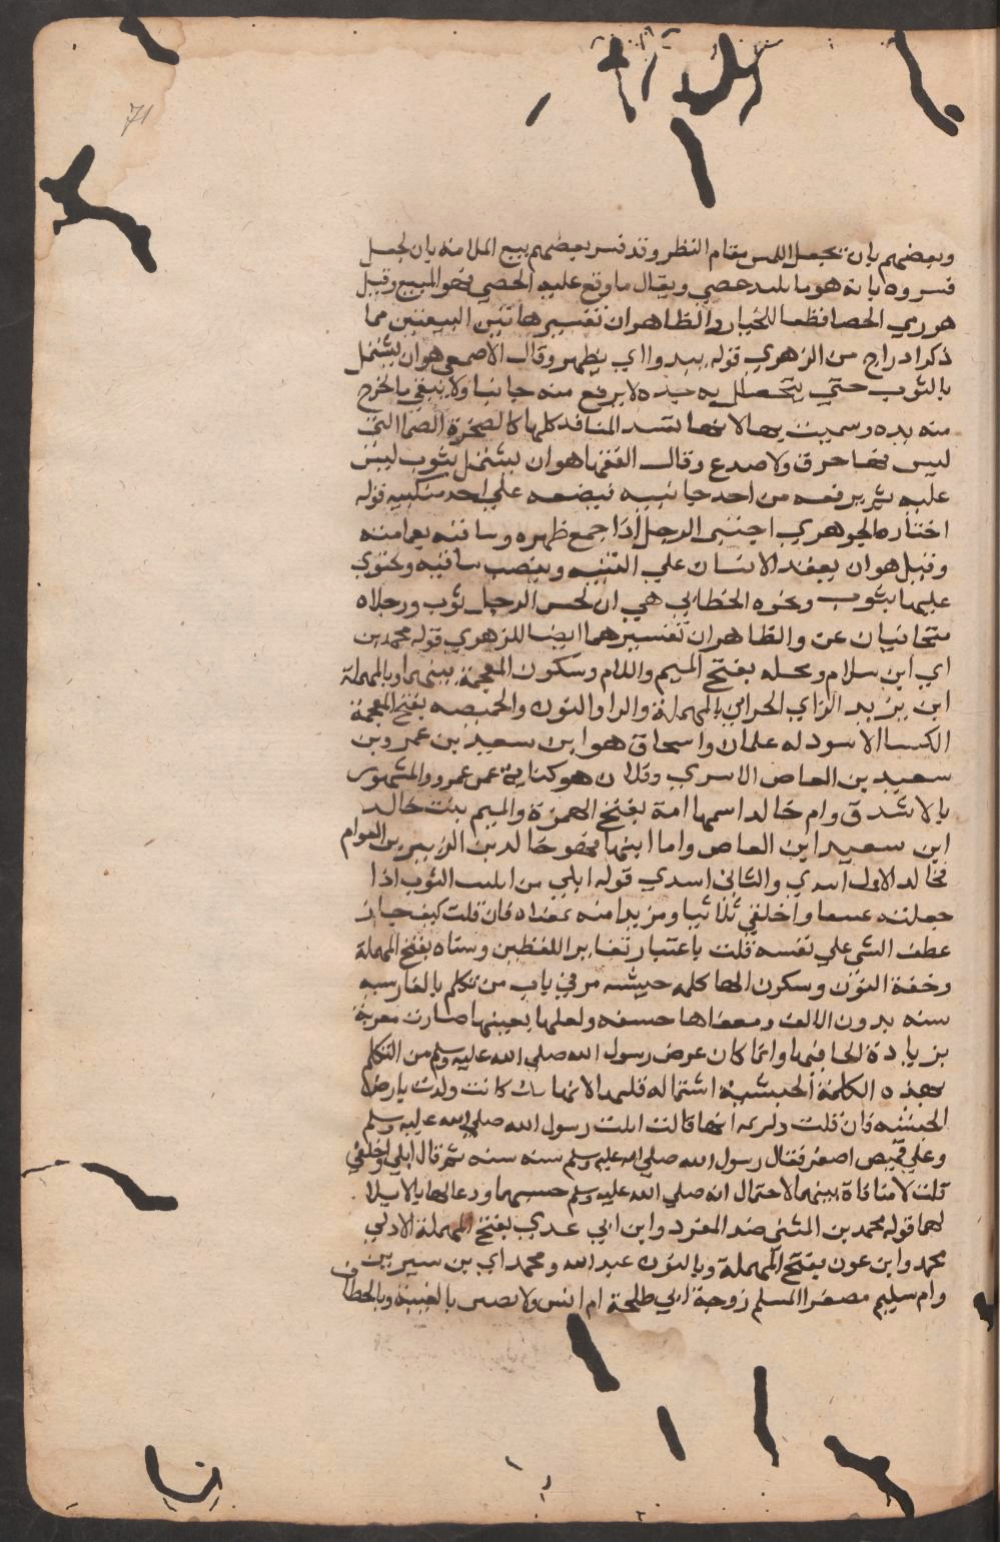 71
وبعضهم بان تجعل اللمس مقام النظر وقد فسر بعضهم بيع الملامسة بان يجعل
فسروه بانه هو ما بلبد حصى ويقال ما وقع عليه الحصى فهو المبيع وقيل
هو رمي الحصا فظعا للخيار والظاهر ان تفسيرها تين البيعتين مما
ذكر ادراج من الزهري قوله يبدوا اي يظهر وقال الاصمعي هو ان يشتمل
بالثوب حتى يتجلل به جسده لا يرفع منه جانبا ولا يبقي ما يخرج
منه يده وسميت بها لانها تسد المنافذ كلها كالصخرة الصما التي
ليس فيها خرق ولا صدع وقال الفقها هو ان يشتمل بثوب ليس
عليه ثم يرفعه من احد جانبيه فيضعه علي احد منكبيه قوله
اختاره الجوهري احتبى الرجل اذا جمع ظهره وساقيه بعمامته
وقيل هو ان يقعد الانسان علي اليتيه وينصب ساقيه ويحتوي
عليها بثوب ونحوه الخطابي هي ان يحس الرجل ثوب ورجلاه
متجافيان عن والظاهر ان تفسيرهما ايضا للزهري قوله محمد بن
اي ابن سلام ومخلد بفتح الميم واللام وسكون المعجمة بينهما وبالمهملة
ابن يزيد الزاي الحراني بالمهملة والرا والنون والخميصه بفتح المعجمة
الكسا الاسود له علمان واسحاق هو ابن سعيد بن عمرو بن
سعيد بن العاص الاسري وفلان هو كناية عن عمرو والمشهور
بالاشدق وام خالد اسمها امة بفتح الهمزة والميم بنت خالد
ابن سعيد ابن العاص واما ابنها فهو خالد بن الزبير بن العوام
فخالد الاول اسدي والثاني اسدي قوله ابلي من ابليت الثوب اذا
جعلته عتيقا واخلقي ثلاثيا ومزيدا منه بمعناه فان قلت كيف جاز
عطف الشي علي نفسه قلت باعتبار تغاير اللفظين وسناه بفتح المهملة
وخفة النون وسكون الها كلمه حبشيه مر في باب من تكلم بالفارسيه
سنه بدون الالف ومعناها حسنه ولعلها بعينها صارت معربة
بزيادة الحا فيها وانما كان عرض رسول الله صلي الله عليه وسلم من التكلم
بهذه الكلمة الحبشية استماله قلبها لانها كانت ولدت بارض
الحبشه فان قلت انها قالت اتيت رسول الله صلي الله عليه وسلم
وعلي قميص اصفر فقال رسول الله صلي الله عليه وسلم سنه سنه ثم قال ابلي واخلقي
قلت لا منافاة بينهما لاحتمال انه صلي الله عليه وسلم حسنهما ودعا لها بالابلا
لهما قوله محمد بن المثنى ضد المفرد وابن ابي عدي بفتح المهملة الاولي
محمد وابن عون بفتح المهملة وبالنون عبد الله ومحمد اي بن سيرين
وام سليم مصغر المسلم زوجة ابي طلحة ام انس ولا يصيبن بالغيبة وبالخطاب